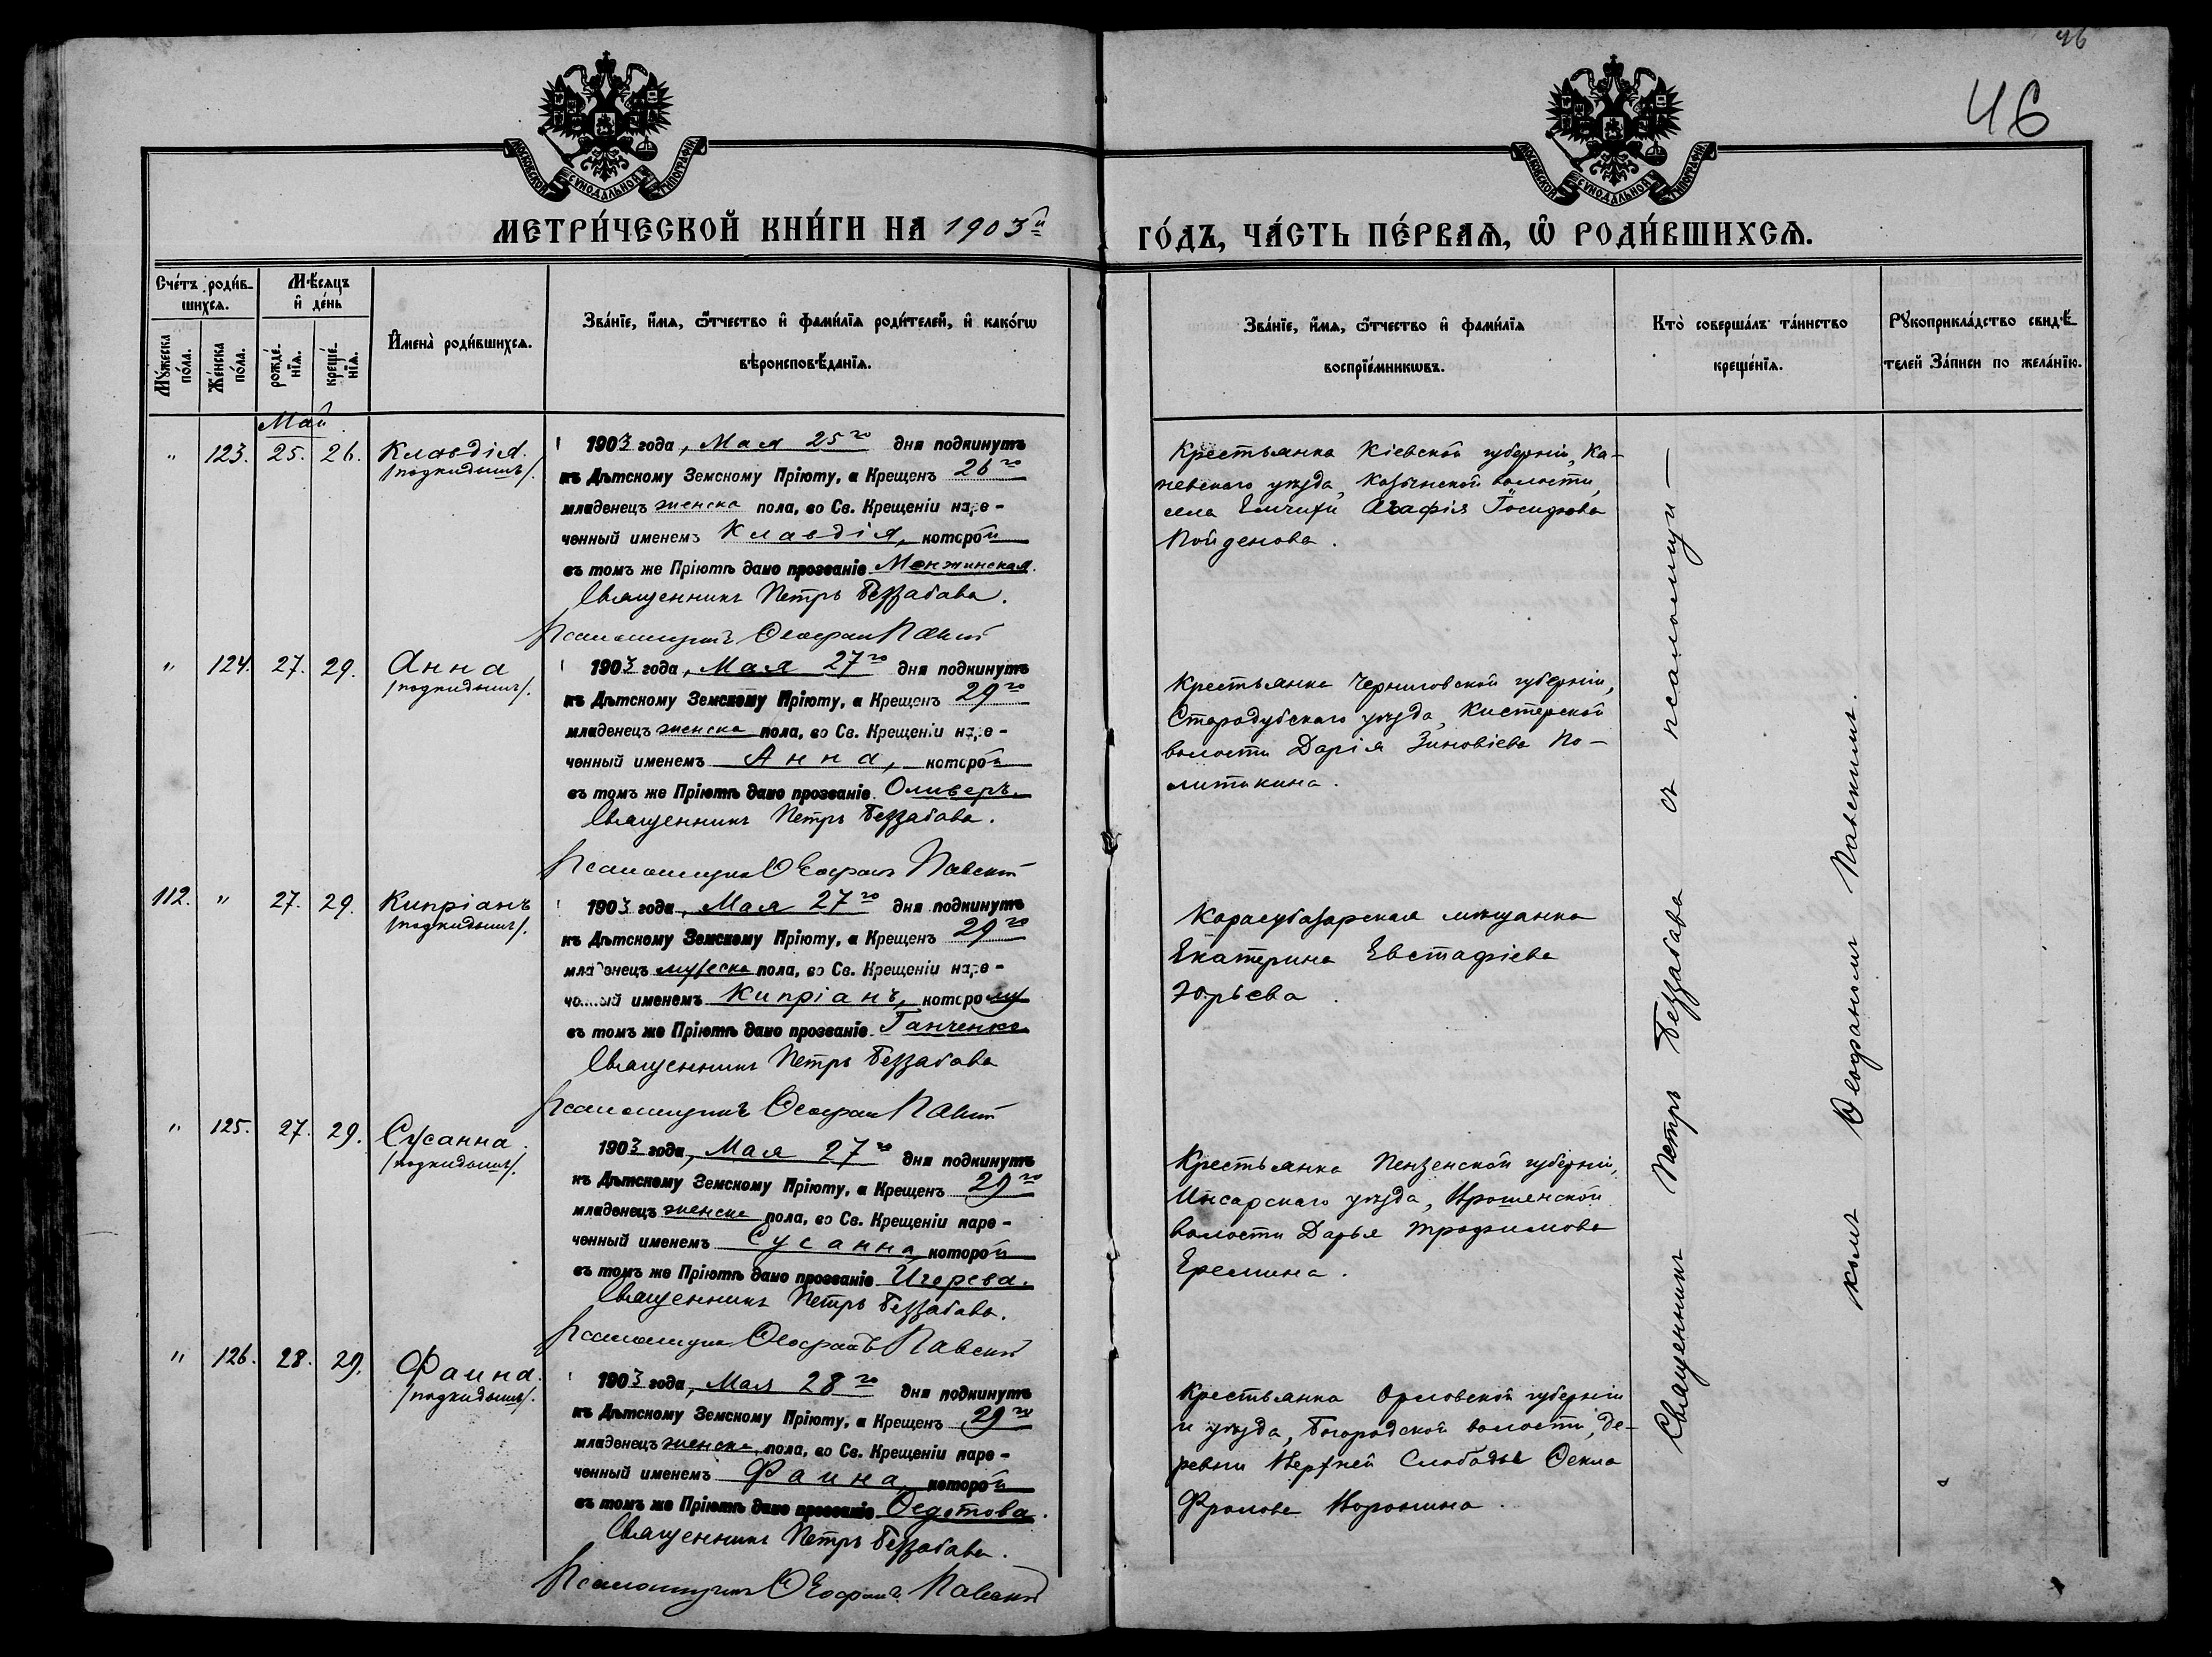 46
46
МОСКОВСКОЙ СѴНОДАЛЬНОЙ ТИПОГРАФІИ
МОСКОВСКОЙ СѴНОДАЛЬНОЙ ТИПОГРАФІИ
МЕТРИ́ЧЕСКОЙ КНИ́ГИ НА 1903й
ГО́ДЪ, ЧА́СТЬ ПЕ́РВАѦ, Ѡ РОДИ́ВШИХСѦ.
Сче́тъ роди́в-
шихсѧ.
Мꙋ́жеска по́ла.
Же́нска по́ла.
Мѣ́сѧцъ
и҆ де́нь
рожде́-
нїѧ.
креще́-
нїѧ.
И҆мена̀ роди́вшихсѧ.
Зва́нїе, и҆́мѧ, ѻ҆́тчество и҆ фами́лїѧ роди́телей, и҆ како́гѡ
вѣроисповѣ́данїѧ.
Зва́нїе, и҆́мѧ, ѻ҆́тчество и҆ фами́лїѧ
воспрїе́мникѡвъ.
Кто̀ соверша́лъ та́инство
креще́нїѧ.
Рꙋкоприкла́дство свидѣ́-
телей За́писи по жела́нїю.
Май
" 123. 25. 26. Клавдія.
/подкидышъ/.
1903 года, Мая 25го дня подкинутъ
къ Дѣтскому Земскому Пріюту, а Крещенъ 26го
младенецъ женска пола, во Св. Крещеніи наре-
ченный именемъ Клавдія, которой
въ томъ же Пріютѣ дано прозваніе Менжинская.
Священникъ Петръ Беззабава.
Псаломщикъ Ѳеофан Павскій
Крестьянка Кіевской губерніи, Ка-
невского уѣзда, Козинской волости,
села Емчихи Агафія Іосифова
Пойденова.
" 124. 27. 29. Анна
/подкидышъ/.
1903 года, Мая 27го дня подкинутъ
къ Дѣтскому Земскому Пріюту, а Крещенъ 29го
младенецъ женска пола, во Св. Крещеніи наре-
ченный именемъ Анна, которой
въ томъ же Пріютѣ дано прозваніе Оливеръ.
Священникъ Петръ Беззабава.
Псаломщикъ Ѳеофанъ Павскій
Крестьянка Черниговской губерніи,
Стародубскаго уѣзда, Кистерской
волости Дарія Зиновіева По-
литыкина.
112. " 27. 29. Кипріанъ
/подкидышъ/.
1903 года, Мая 27го дня подкинутъ
къ Дѣтскому Земскому Пріюту, а Крещенъ 29го
младенецъ мужеска пола, во Св. Крещеніи наре-
ченный именемъ Кипріанъ, которому
въ томъ же Пріютѣ дано прозваніе Ганченко
Священникъ Петръ Беззабава
Псаломщикъ Ѳеофан Павскій
Карасубазарская мѣщанка
Екатерина Евстафіева
Юрьева.
" 125. 27. 29. Сусанна.
/подкидышъ/.
1903 года, Мая 27го дня подкинутъ
къ Дѣтскому Земскому Пріюту, а Крещенъ 29го
младенецъ женска пола, во Св. Крещеніи наре-
ченный именемъ Сусанна которой
въ томъ же Пріютѣ дано прозваніе Игорева.
Священникъ Петръ Беззабава.
Псаломщикъ Ѳеофанъ Павскій
Крестьянка Пензенской губерніи,
Инсарскаго уѣзда,
волости Дарья Трофимова
Еремина.
" 126. 28. 29. Фаина.
/подкидышъ/.
1903 года, Мая 28го дня подкинутъ
къ Дѣтскому Земскому Пріюту, а Крещенъ 29го
младенецъ женска пола, во Св. Крещеніи наре-
ченный именемъ Фаина которой
въ томъ же Пріютѣ дано прозваніе Ѳедотова.
Священникъ Петръ Беззабава.
Псаломщикъ Ѳеофанъ Павскій
Крестьянка Орловской губерніи
и уѣзда, Богородской волости, де-
ревни Верхней Слободы Ѳекла
Фролова Воронина.
Священникъ Петръ Беззабава съ псаломщи-
комъ Ѳеофаномъ Павскимъ.